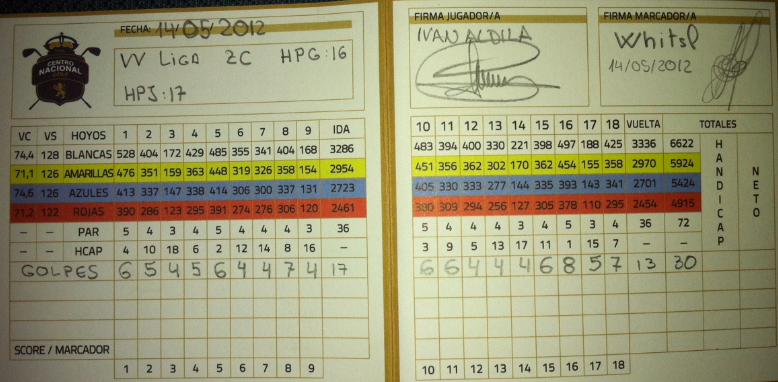 CENTRO
NACIONAL
GOLF
FECHA: 14/05/2012
VV LIGA ZC HPG:16
HPJ:17
VC VS HOYOS 1 2 3 4 5 6 7 8 9 IDA
74,4 128 BLANCAS 528 404 172 429 485 355 341 404 168 3286
71,1 126 AMARILLAS 476 351 159 363 448 319 326 358 154 2954
74,6 126 AZULES 413 337 147 338 414 306 300 337 131 2723
71,2 122 ROJAS 390 286 123 295 391 274 276 306 120 2461
– – PAR 5 4 3 4 5 4 4 4 3 36
– – HCAP 4 10 18 6 2 12 14 8 16 –
GOLPES 6 5 4 5 6 4 4 7 4 17
SCORE / MARCADOR
1 2 3 4 5 6 7 8 9
FIRMA JUGADOR/A
IVAN ALDILA
FIRMA MARCADOR/A
Whitsl
14/05/2012
10 11 12 13 14 15 16 17 18 VUELTA TOTALES
483 394 400 330 221 398 497 188 425 3336 6622
451 356 362 302 170 362 454 155 358 2970 5924
405 330 333 277 144 335 393 143 341 2701 5424
380 309 294 256 127 305 378 110 295 2454 4915
5 4 4 4 3 4 5 3 4 36 72
3 9 5 13 17 11 1 15 7 – –
6 6 4 4 4 6 8 5 7 13 30
HANDICAP
NETO
10 11 12 13 14 15 16 17 18